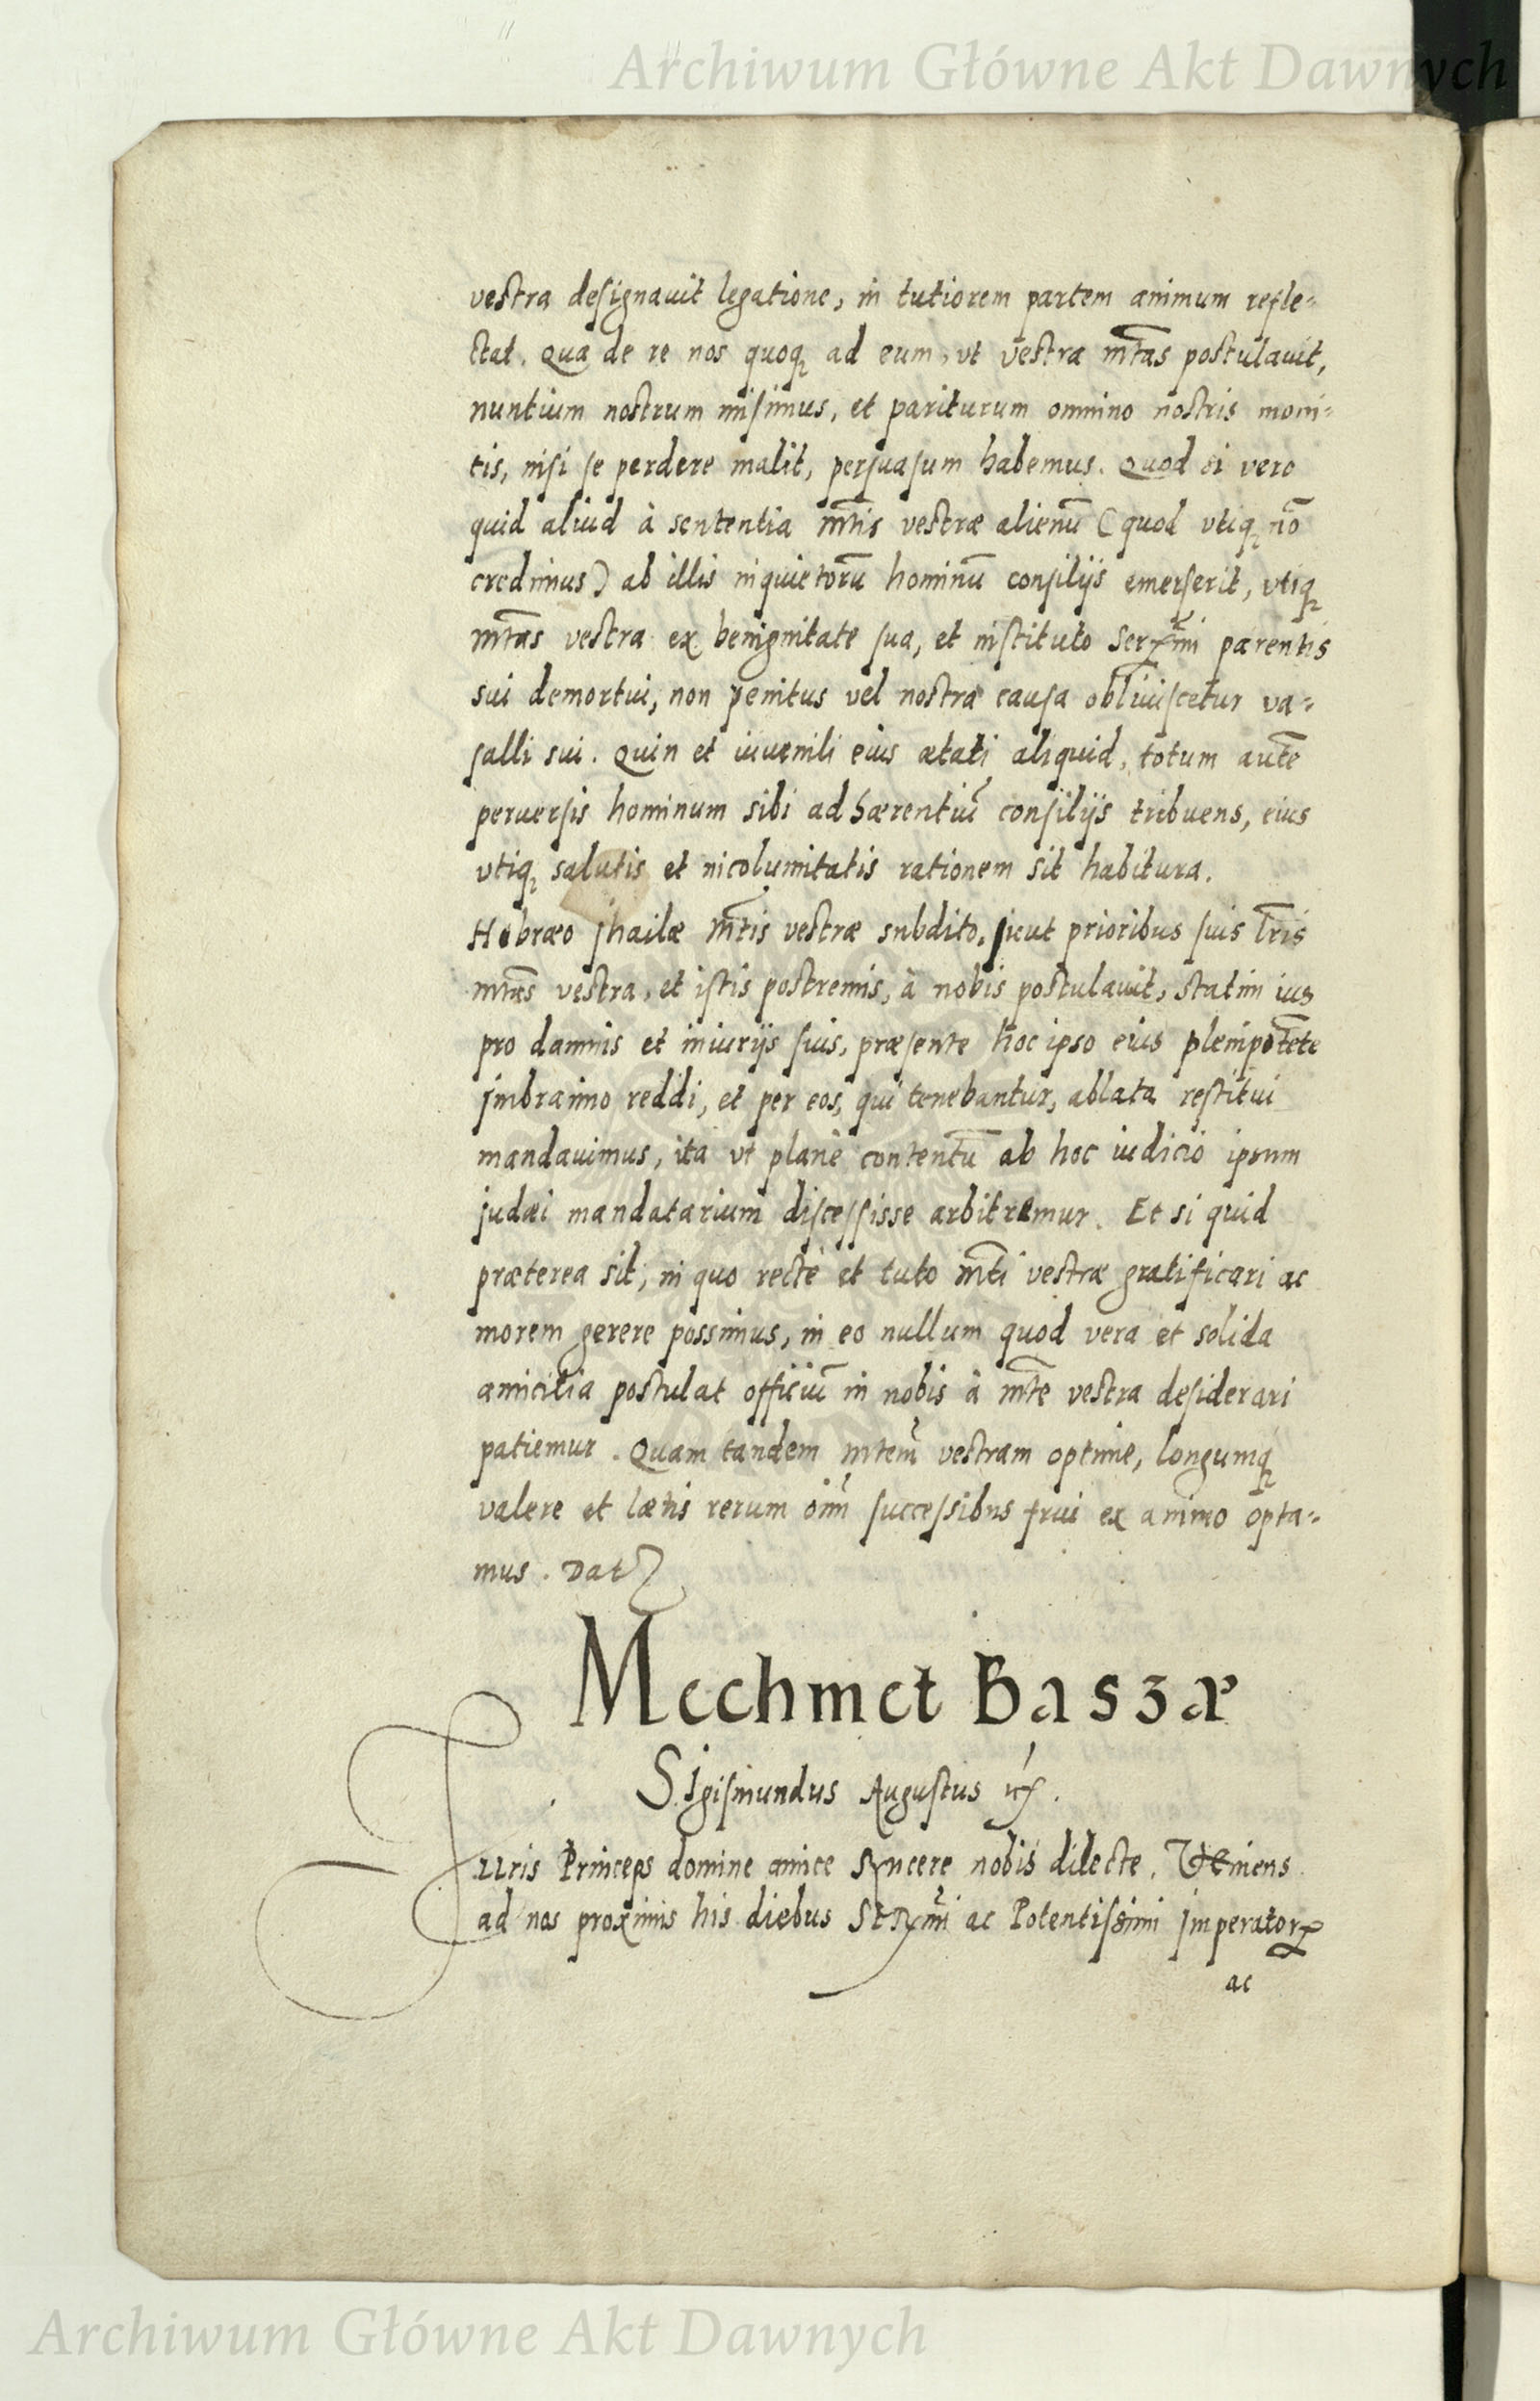 Archiwum Główne Akt Dawnych
vestra designauit legatione, in tutiorem partem animum refle-
ctat. Qua de re nos quoq ad eum, vt vestra mtas postulauit,
nuntium nostrum misimus, et pariturum omnino nostris moni-
tis, nisi se perdere malit, persuasum habemus. Quod si vero
quid aliud à sententia mtis vestræ alienū (quod vtiq nō
credimus) ab illis inquietorū hominū consilijs emerserit, vtiq
mtas vestra ex benignitate sua, et instituto Serxmi parentis
sui demortui, non penitus vel nostra causa obliuiscetur va-
salli sui. Quin et iuuenili eius ætati aliquid, totum autē
peruersis hominum sibi adhærentiū consilijs tribuens, eius
vtiq salutis et incolumitatis rationem sit habitura.
Hebræo Jhailæ mtis vestræ subdito, sicut prioribus suis lris
mtas vestra, et istis postremis, à nobis postulauit, statim ius
pro damnis et iniurijs suis, præsente hoc ipso eius plenipotēte
Jmbraimo reddi, et per eos, qui tenebantur, ablata restitui
mandauimus, ita vt planè contentū ab hoc iudicio ipsum
judæi mandatarium discessisse arbitremur. Et si quid
præterea sit, in quo rectè et tuto mti vestræ gratificari ac
morem gerere possimus, in eo nullum quod vera et solida
amicitia postulat officiū in nobis à mte vestra desiderari
patiemur. Quam tandem mtem vestram optime, longumq
valere et lætis rerum oīm successibus frui ex animo opta-
mus. Dat
Mechmet Baszæ
Sigismundus Augustus
Juris Princeps domine amice syncere nobis dilecte. Veniens
ad nos proximis his diebus Serxmi ac Potentissimi Imperatorꝝ
ac
Archiwum Główne Akt Dawnych